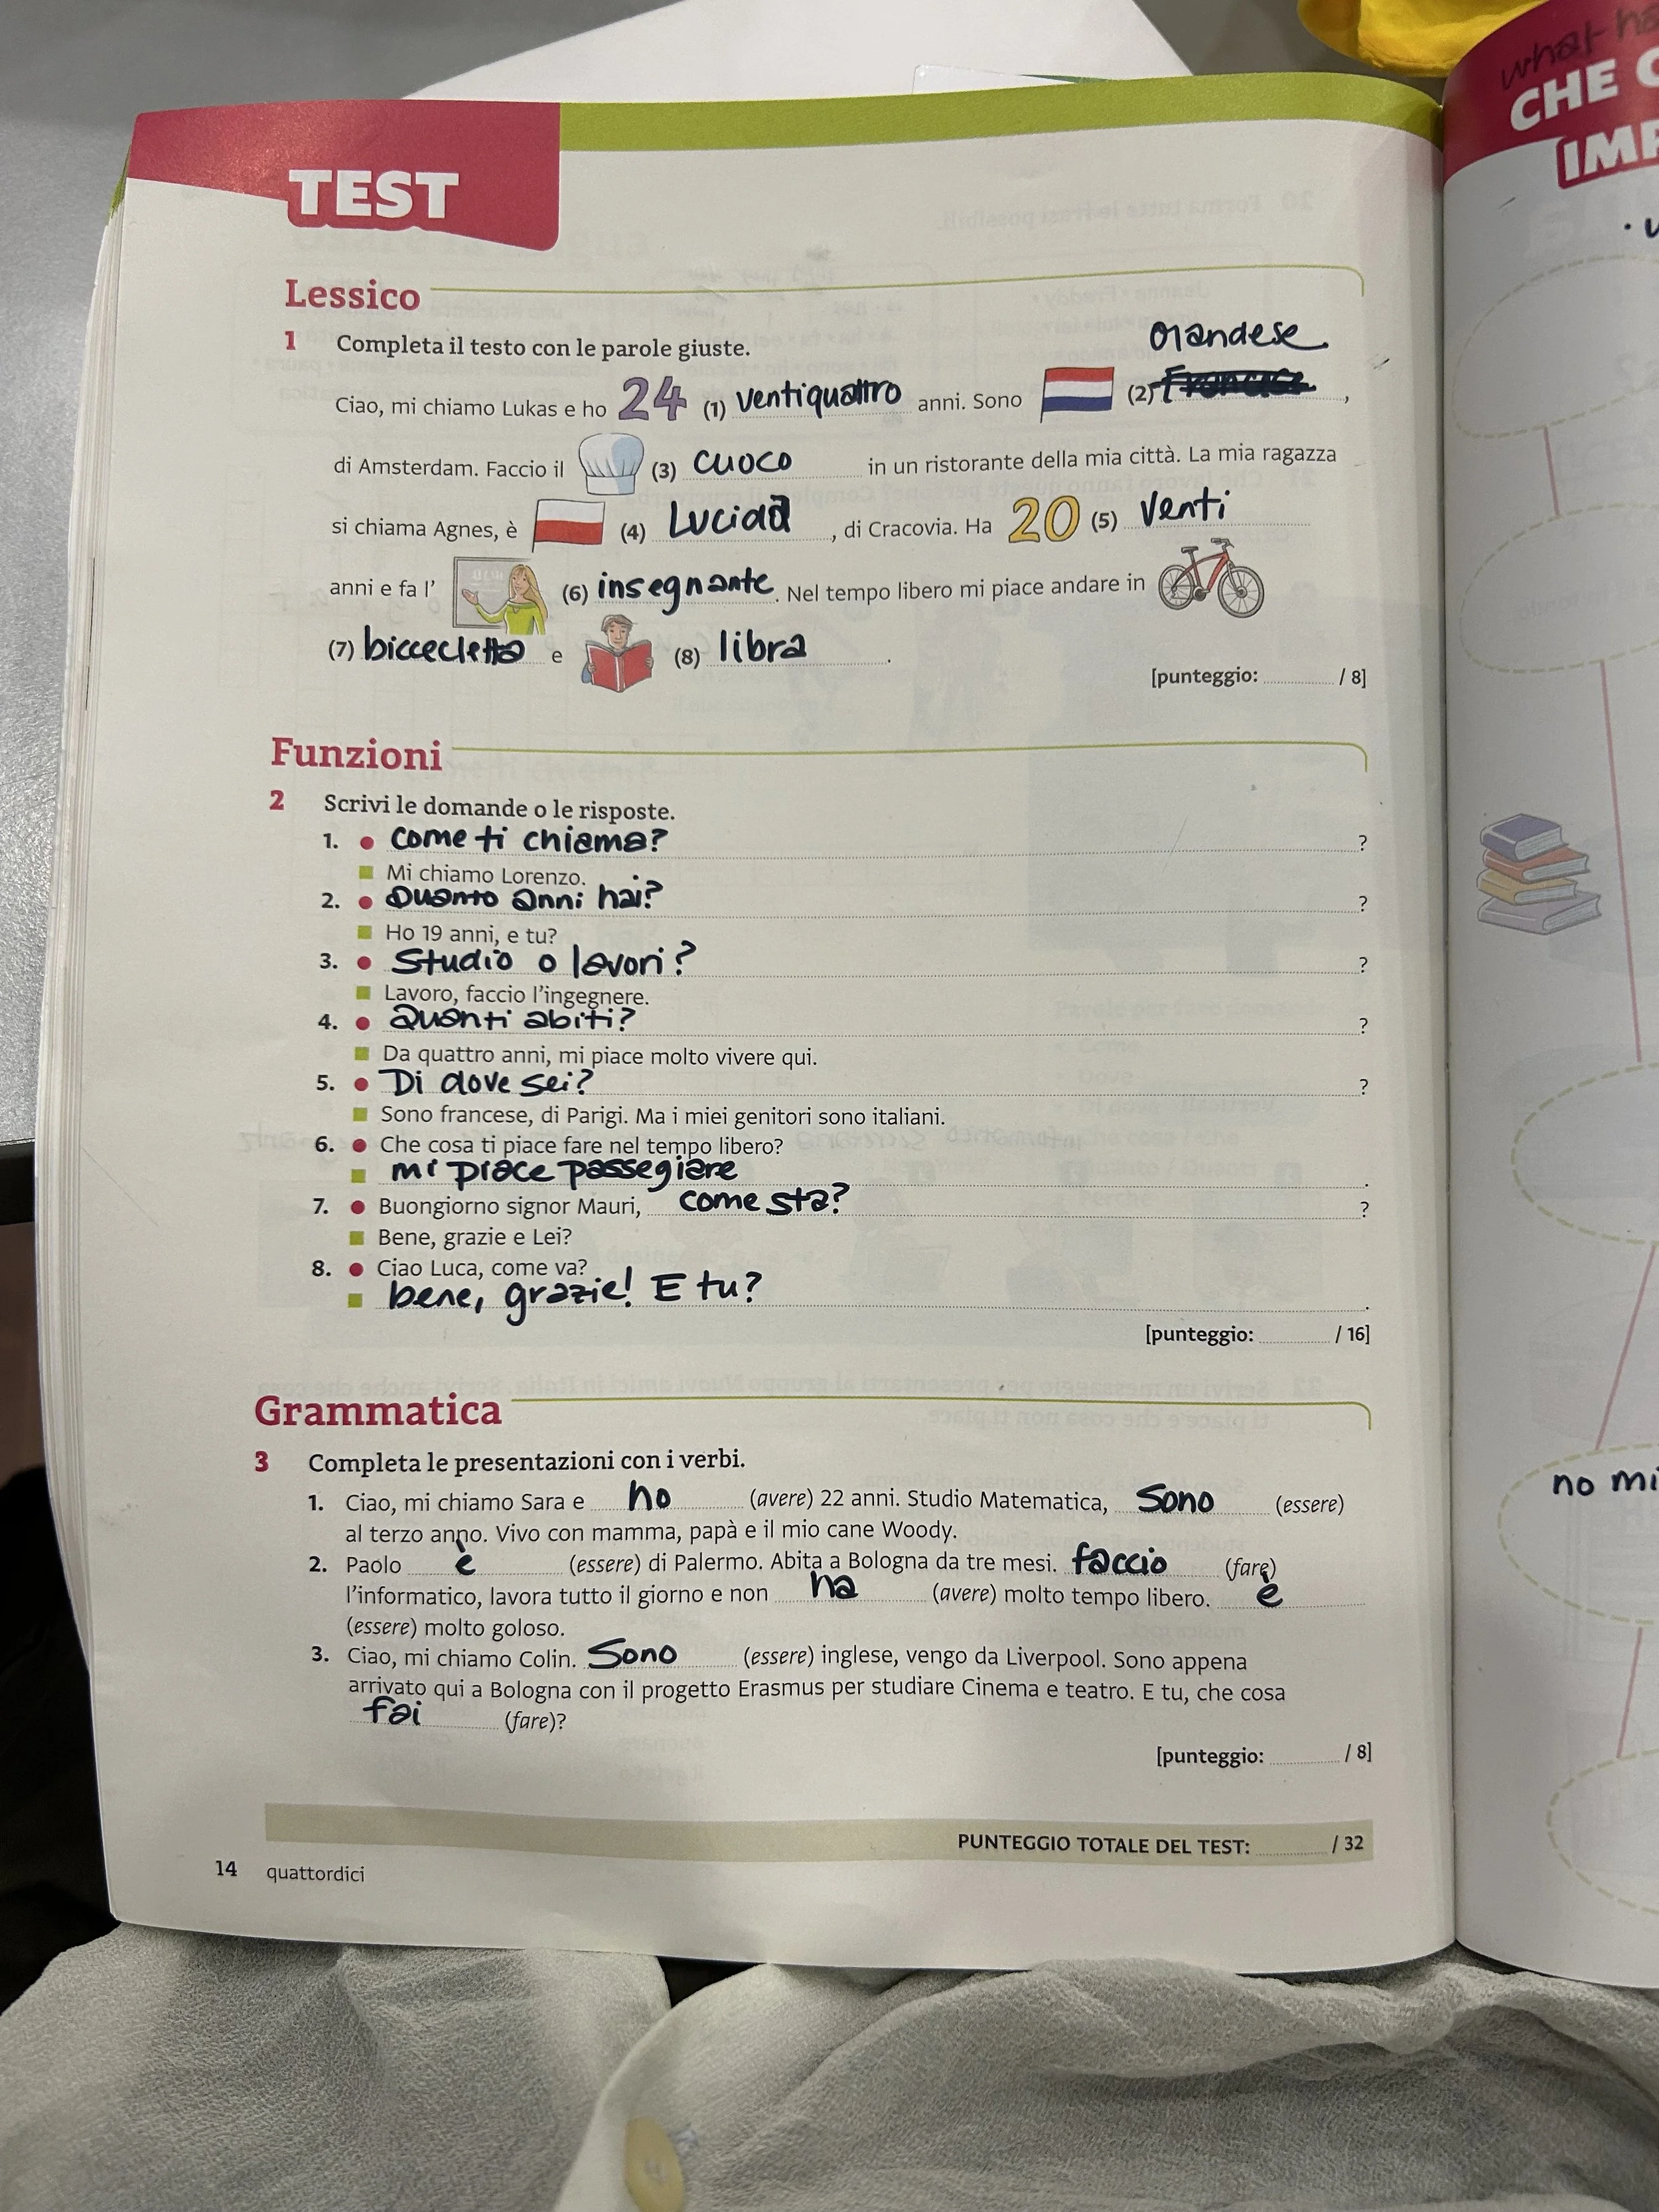 what ha
CHE C
IMP
TEST
Lessico
1 Completa il testo con le parole giuste.
olandese
Ciao, mi chiamo Lukas e ho 24 (1) ventiquattro anni. Sono (2) Francese ,
di Amsterdam. Faccio il (3) cuoco in un ristorante della mia città. La mia ragazza
si chiama Agnes, è (4) , di Cracovia. Ha 20 (5) venti
anni e fa l' (6) insegnante. Nel tempo libero mi piace andare in
(7) biccecletta e (8) libra .
[punteggio: / 8]
Funzioni
2 Scrivi le domande o le risposte.
1. Come ti chiama? ?
Mi chiamo Lorenzo.
2. Quanto anni hai? ?
Ho 19 anni, e tu?
3. Studio o lavori? ?
Lavoro, faccio l'ingegnere.
4. Quanti abiti? ?
Da quattro anni, mi piace molto vivere qui.
5. Di dove sei? ?
Sono francese, di Parigi. Ma i miei genitori sono italiani.
6. Che cosa ti piace fare nel tempo libero?
mi piace passegiare .
7. Buongiorno signor Mauri, come sta? ?
Bene, grazie e Lei?
8. Ciao Luca, come va?
bene, grazie! E tu? .
[punteggio: / 16]
Grammatica
3 Completa le presentazioni con i verbi.
1. Ciao, mi chiamo Sara e ho (avere) 22 anni. Studio Matematica, Sono (essere)
al terzo anno. Vivo con mamma, papà e il mio cane Woody.
2. Paolo è (essere) di Palermo. Abita a Bologna da tre mesi. faccio (fare)
l'informatico, lavora tutto il giorno e non ha (avere) molto tempo libero. è
(essere) molto goloso.
3. Ciao, mi chiamo Colin. Sono (essere) inglese, vengo da Liverpool. Sono appena
arrivato qui a Bologna con il progetto Erasmus per studiare Cinema e teatro. E tu, che cosa
fai (fare)?
[punteggio: / 8]
PUNTEGGIO TOTALE DEL TEST: / 32
14 quattordici
no mi